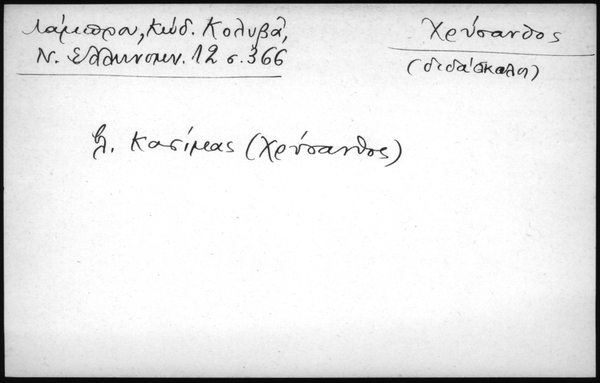 Λάμπρου, Κώδ. Κολυβᾶ,
Ν. Ἑλληνομν. 12 σ. 366
Χρύσανθος
(διδάσκαλος)
βλ. Κασίμιας (Χρύσανθος)